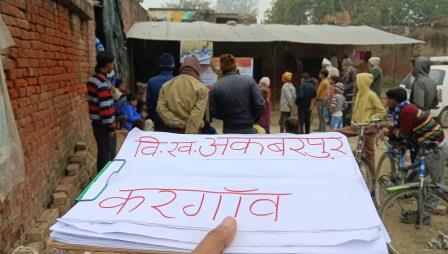 वि.ख.अकबरपुर
करगाँव